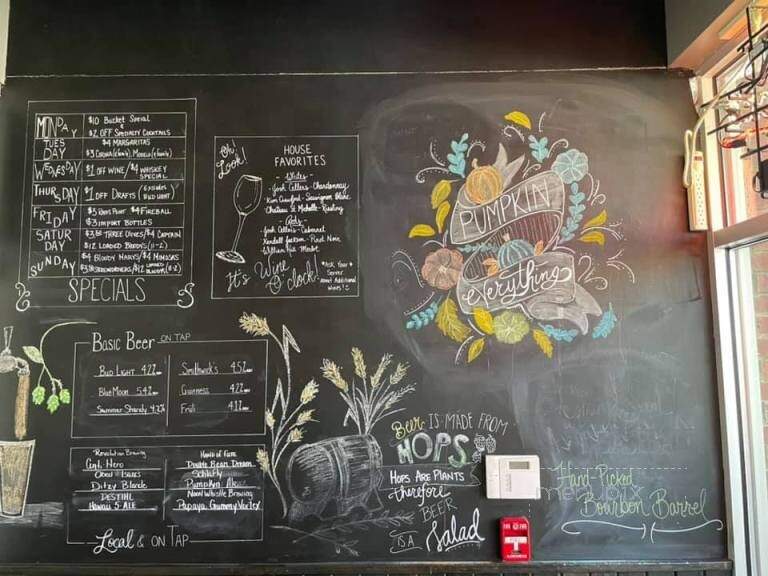 MONDAY
$10 Bucket Special
$2 OFF Specialty Cocktails
TUESDAY
$4 MARGARITAS
WEDNESDAY
$1 OFF WINE / $4 WHISKEY SPECIAL
THURSDAY
$1 OFF DRAFTS
FRIDAY
$4 FIREBALL
$3 IMPORT BOTTLES
SATURDAY
THREE OLIVES / $4 CAPTAIN
$12 LOADED BLOODYS (11-2)
SUNDAY
$4 BLOODY MARYS / $4 MIMOSAS
SPECIALS
Oh, Look!
HOUSE FAVORITES
Whites
Josh Cellars - Chardonnay
Kim Crawford - Sauvignon Blanc
Chateau St Michelle - Riesling
Reds
Josh Cellars - Cabernet
Kendall Jackson - Pinot Noir
William Hill - Merlot
It's Wine O'clock!
*Ask Your Server About Additional Wines!
PUMPKIN
everything
Basic Beer ON TAP
BUD LIGHT 4.2%
Blue Moon 5.4%
Summer Shandy 4.2%
Smithwick's 4.5%
Guinness 4.2%
Revolution Brewing
Anti-Hero
Ditzy Blonde
DESTIHL
Hawaii 5-ALE
Double Bean Dream
Schlafly
Pumpkin Ale
Noon Whistle Brewing
Local & ON TAP
Beer IS MADE FROM
HOPS
HOPS ARE PLANTS
therefore
BEER
IS A Salad
Hand-Picked
Bourbon Barrel